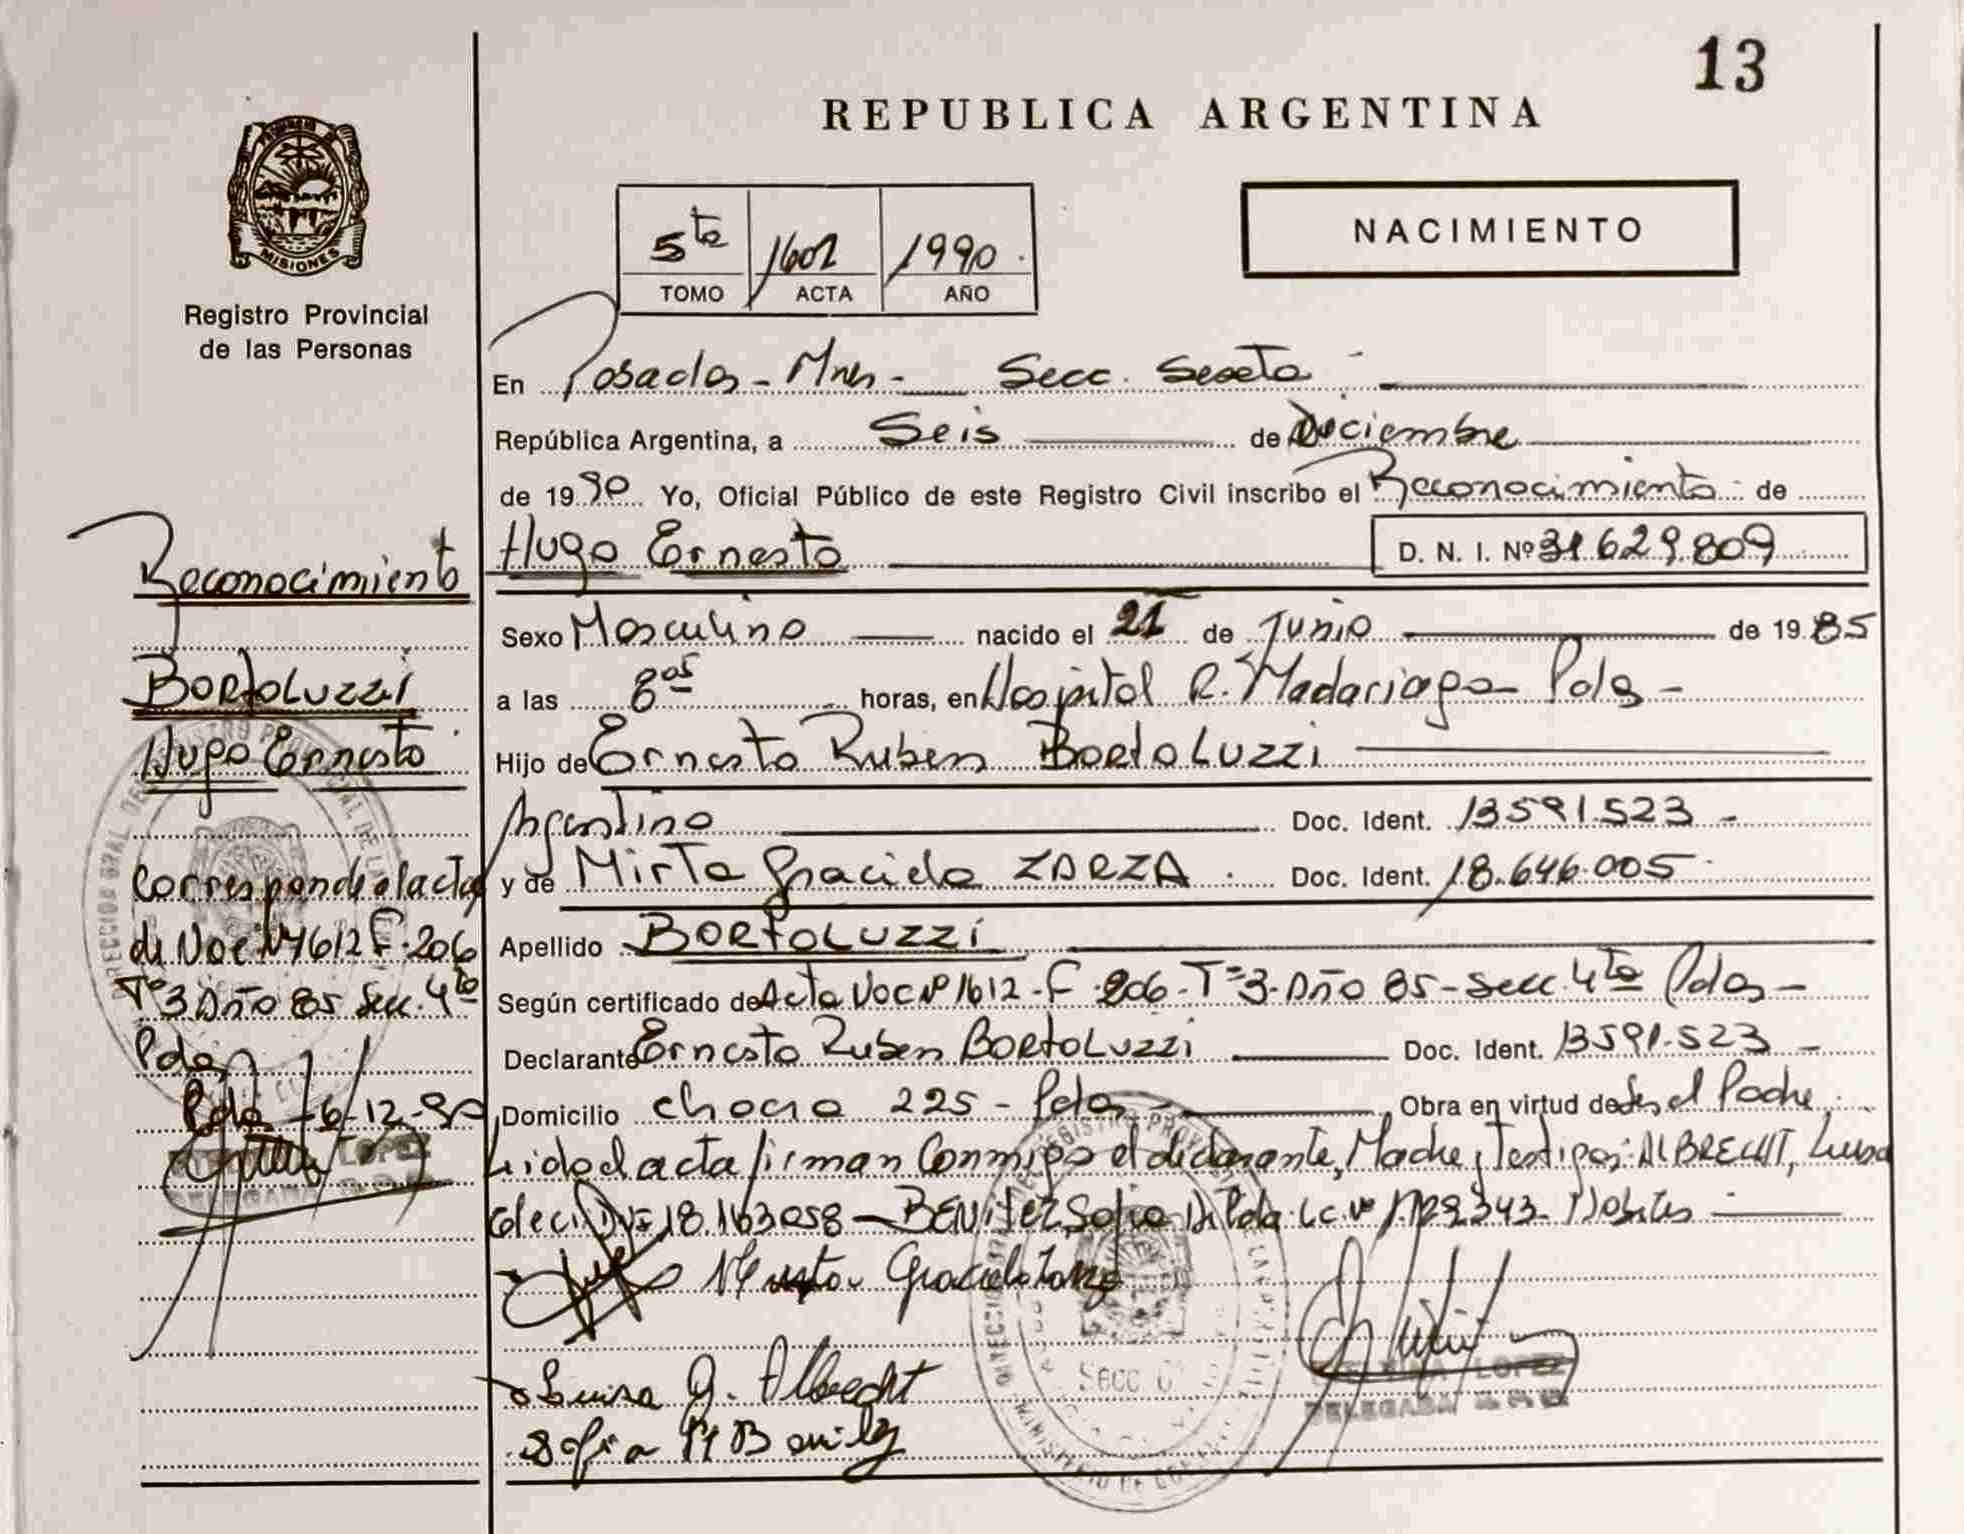 13
REPUBLICA ARGENTINA
NACIMIENTO
5ta 1602 1990
TOMO ACTA AÑO
MISIONES
Registro Provincial
de las Personas
En Posadas - Mnes - Secc. Sexta
República Argentina, a Seis de Diciembre
de 1990 Yo, Oficial Público de este Registro Civil inscribo el Reconocimiento de
Hugo Ernesto D. N. I. Nº 31.629.809
Sexo Masculino nacido el 21 de Junio de 1985
a las 8 05 horas, en Hospital R. Madariaga Pdas -
Hijo de Ernesto Ruben BORTOLUZZI
Argentino Doc. Ident. 13.591.523 -
y de Mirta Graciela ZARZA Doc. Ident. 18.646.005
Apellido BORTOLUZZI
Según certificado de Acta Nac Nº 1612 - F. 206 - Tº 3 - Año 85 - Secc. 4ta Pdas -
Declarante Ernesto Ruben BORTOLUZZI Doc. Ident. 13.591.523 -
Domicilio chaco 225 - Pdas Obra en virtud de Ser el Padre,
Leida el acta firman Conmigo el declarante, Madre y Testigos: ALBRECHT, Luisa
18.163.058 - BENITEZ, Sofia
Graciela Zarza
Luisa G. Albrecht
Sofia M Benitez
LOPEZ
DELEGADA
Secc
Reconocimiento
BORTOLUZZI
Hugo Ernesto
Corresponde al acta
de Nac Nº 1612 F. 206
Tº 3 Año 85 Secc. 4ta
Pdas
Pdas 6-12-90
LOPEZ
DELEGADA